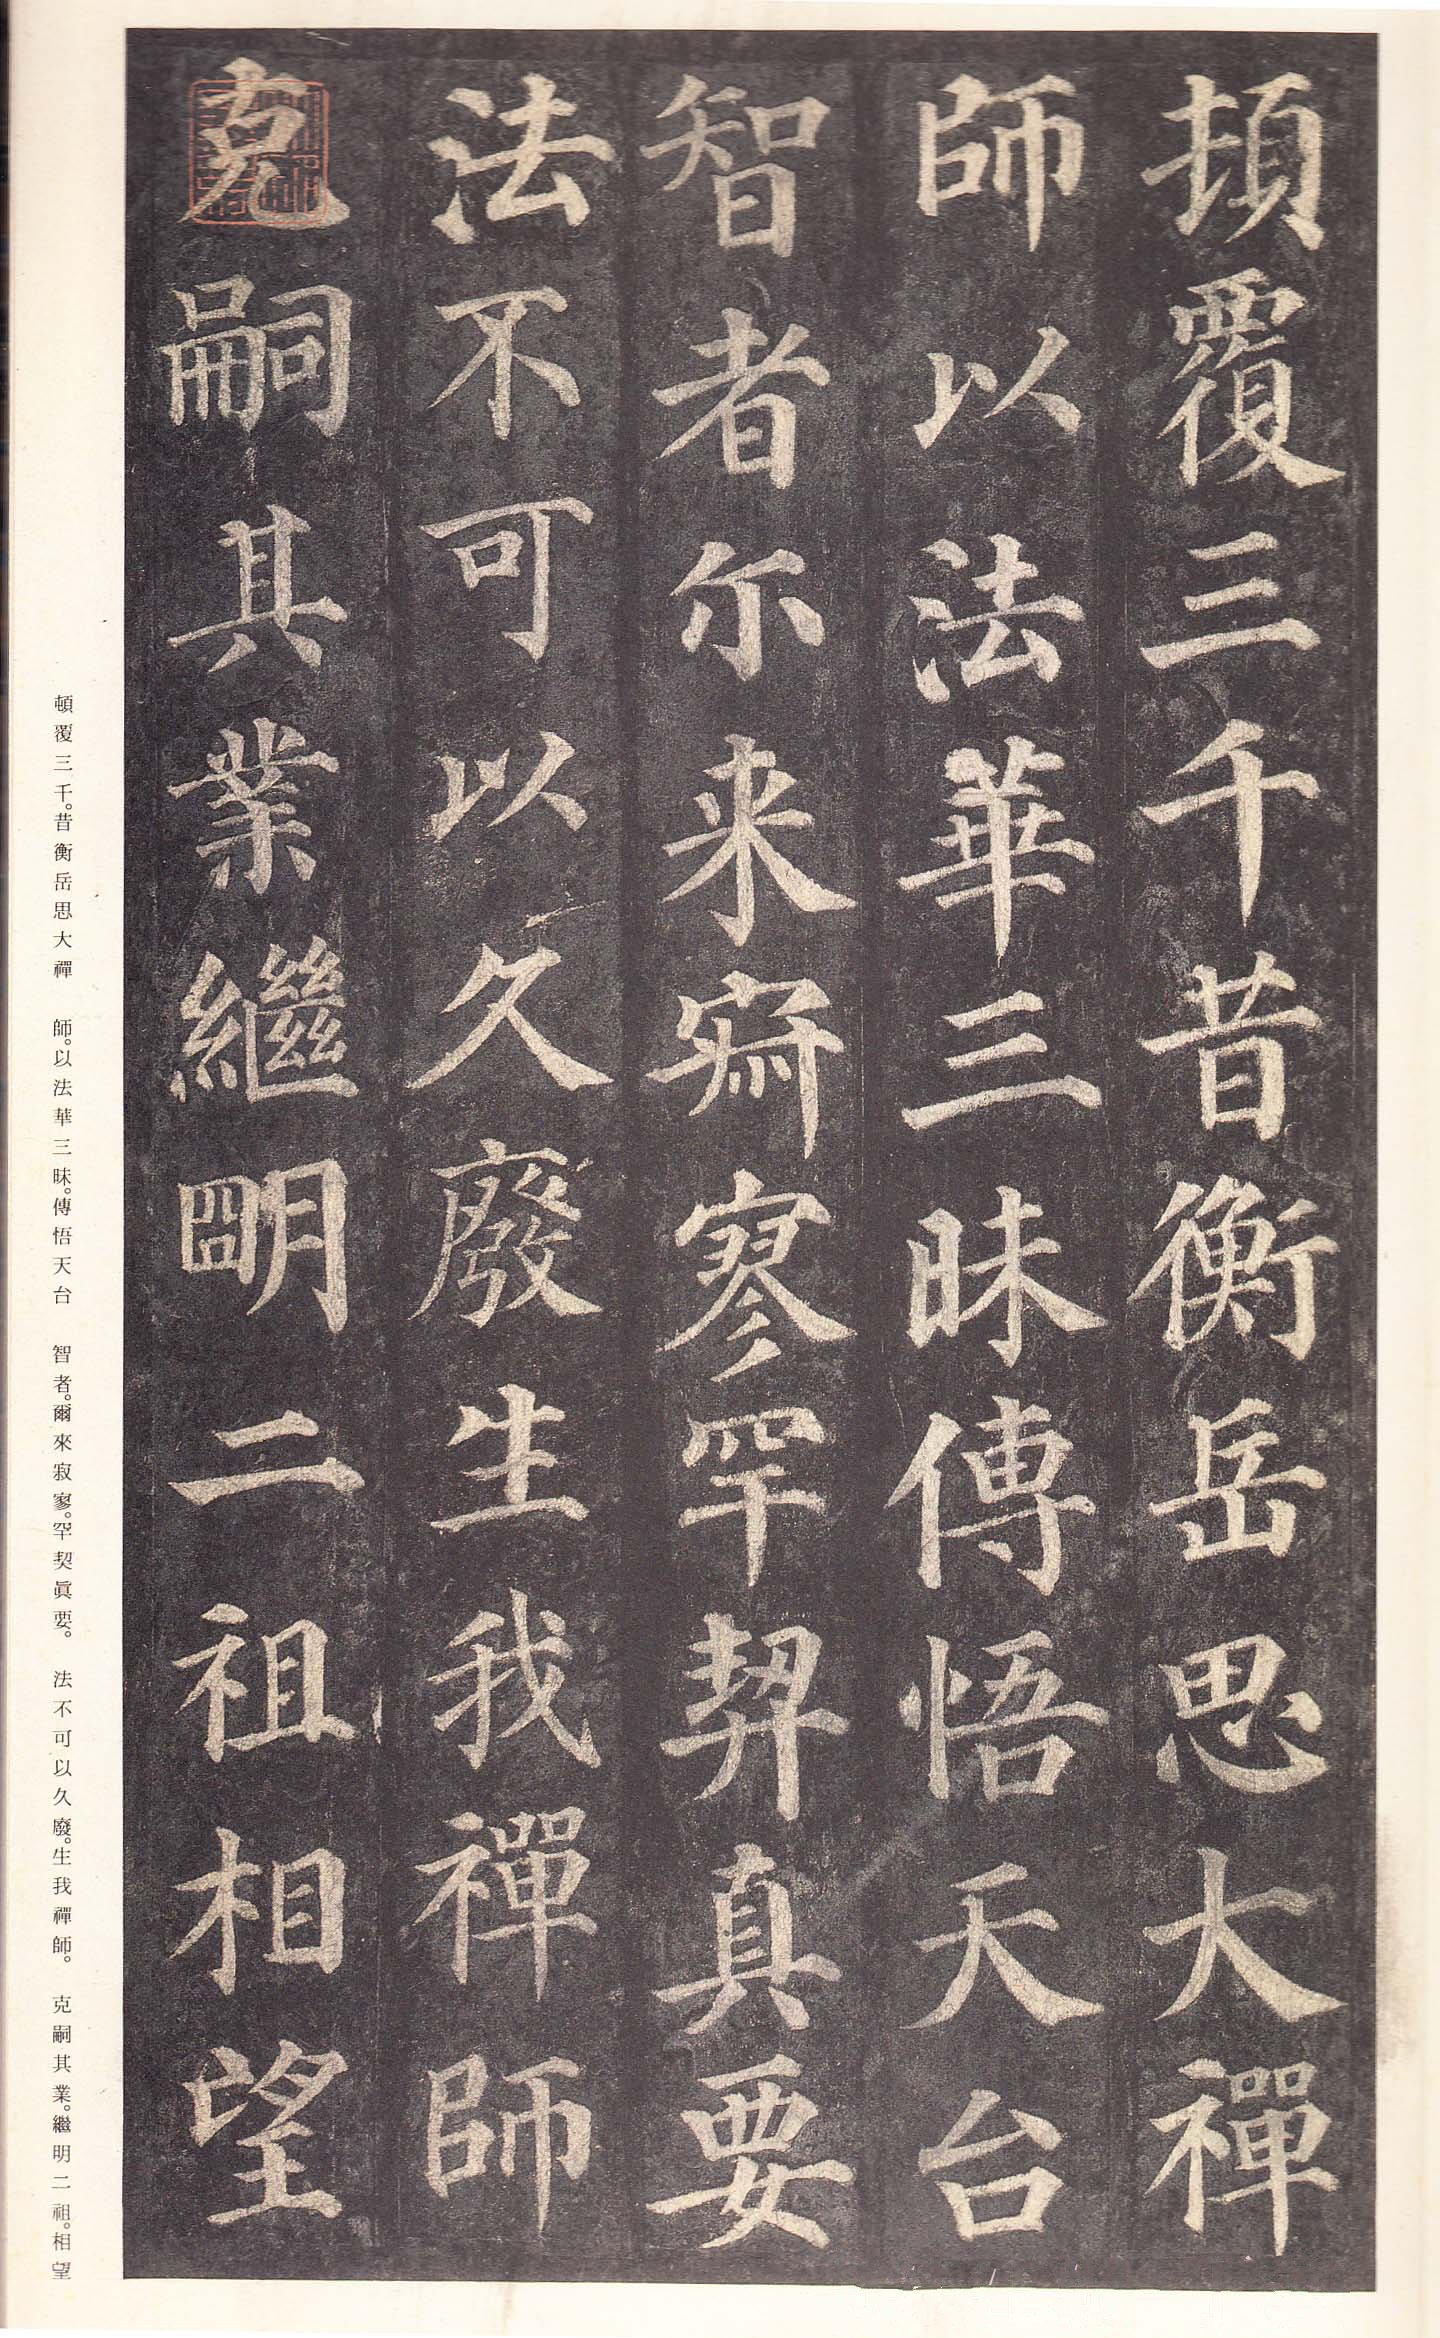 頓覆三千昔衡岳思大禪
師以法華三昧傳悟天台
智者尓来寂寥罕契真要
法不可以久廢生我禪師
克嗣其業繼明二祖相望
頓覆三千。昔衡岳思大禪　師。以法華三昧。傳悟天台　智者。爾來寂寥。罕契眞要。　法不可以久廢。生我禪師。　克嗣其業。繼明二祖。相望